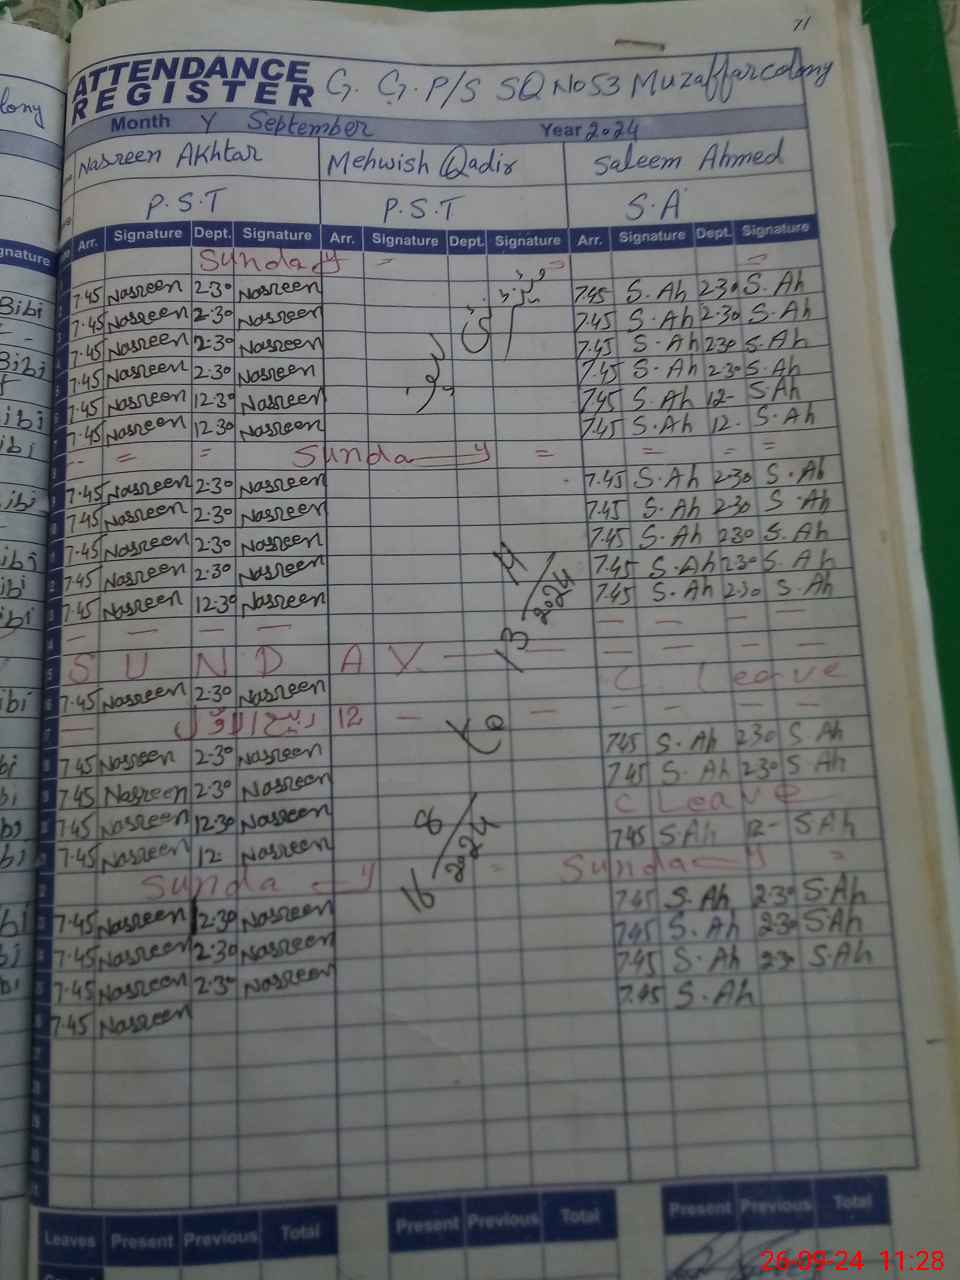 71
ATTENDANCE REGISTER G. G. P/S SQ No 53 Muzaffarcolony
Month Y September Year 2024
Nasreen Akhtar Mehwish Qadir Saleem Ahmed
P.S.T P.S.T S.A
Arr. Signature Dept. Signature Arr. Signature Dept. Signature Arr. Signature Dept. Signature
Sunday = = =
7.45 Nasreen 2.30 Nasreen 7.45 S.Ah 2.30 S.Ah
7.45 Nasreen 2.30 Nasreen 7.45 S.Ah 2.30 S.Ah
7.45 Nasreen 2.30 Nasreen 7.45 S.Ah 230 S.Ah
7.45 Nasreen 2.30 Nasreen 7.45 S.Ah 2.30 S.Ah
7.45 Nasreen 12.30 Nasreen 7.45 S.Ah 12- S.Ah
7.45 Nasreen 12.30 Nasreen 7.45 S.Ah 12. S.Ah
-- = = Sunday = = = =
7.45 Nasreen 2.30 Nasreen 7.45 S.Ah 2.30 S.Ah
7.45 Nasreen 2.30 Nasreen 7.45 S.Ah 2.30 S.Ah
7.45 Nasreen 2.30 Nasreen 7.45 S.Ah 230 S.Ah
7.45 Nasreen 2.30 Nasreen 7.45 S.Ah 2.30 S.Ah
7.45 Nasreen 12.30 Nasreen 7.45 S.Ah 2.30 S.Ah
— — — — — — — —
SUNDAY — — — — — —
7.45 Nasreen 2.30 Nasreen C. Leave
— 12 ربیع الاوّل — — — — — —
7.45 Nasreen 2.30 Nasreen 745 S.Ah 230 S.Ah
7.45 Nasreen 2.30 Nasreen 7.45 S.Ah 2.30 S.Ah
7.45 Nasreen 12.30 Nasreen C Leave
7.45 Nasreen 12. Nasreen 745 S.Ah 12- S.Ah
Sunday = Sunday =
7.45 Nasreen 12.30 Nasreen 7.45 S.Ah 2.30 S.Ah
7.45 Nasreen 2.30 Nasreen 7.45 S.Ah 2.30 S.Ah
7.45 Nasreen 2.30 Nasreen 7.45 S.Ah 2.30 S.Ah
7.45 Nasreen 7.45 S.Ah
Leaves Present Previous Total Present Previous Total Present Previous Total
26-09-24 11:28